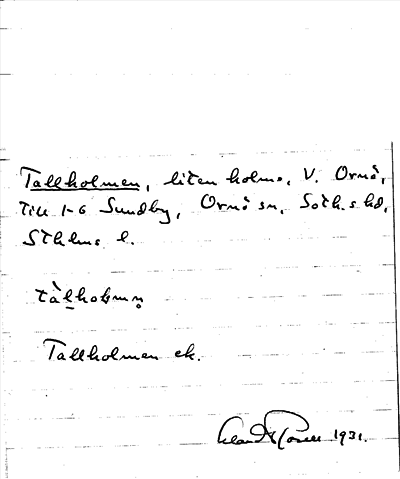 Tallholmen, liten holme, V. Ornö,
till 1-6 Sundby, Ornö sn, Soth.s hd,
Sthlms l.
tàl̲hol̲mn̥
Tallholmen ek.
1931.